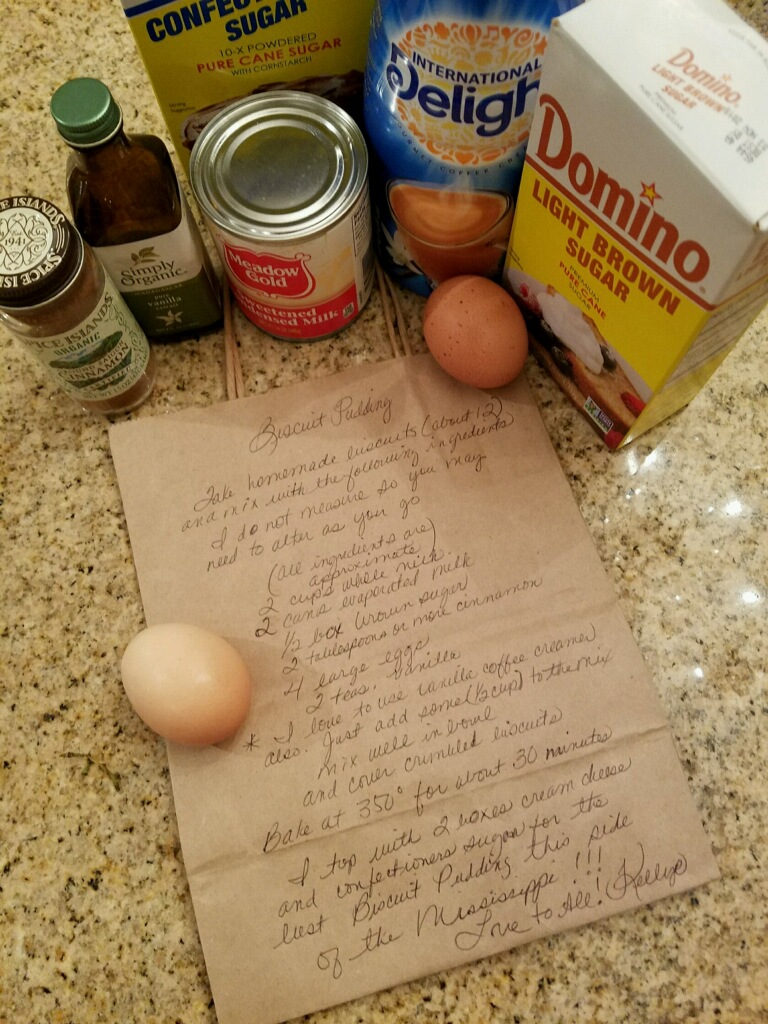 CONFEC
SUGAR
10-X POWDERED
PURE CANE SUGAR
WITH CORNSTARCH
INTERNATIONAL
Delight
GOURMET COFFEE
Domino
LIGHT BROWN
SUGAR
Domino
LIGHT BROWN
SUGAR
PREMIUM
PURE CANE
SUGAR
Meadow
Gold
Sweetened
Condensed Milk
Simply
Organic
vanilla
SPICE ISLANDS
1941
SPICE ISLANDS
ORGANIC
CINNAMON
Biscuit Pudding
Take homemade biscuits (about 12)
and mix with the following ingredients
I do not measure so you may
need to alter as you go
(all ingredients are
approximate)
2 cups whole milk
2 cans evaporated milk
1/2 box brown sugar
2 tablespoons or more cinnamon
4 large eggs
2 teas. vanilla
* I love to use vanilla coffee creamer
also. Just add some (1/2 cup) to the mix
mix well in bowl
and cover crumbled biscuits
Bake at 350° for about 30 minutes
I top with 2 boxes cream cheese
and confectioners sugar for the
best Biscuit Pudding this side
of the Mississippi!!!
Love to All! Kellye